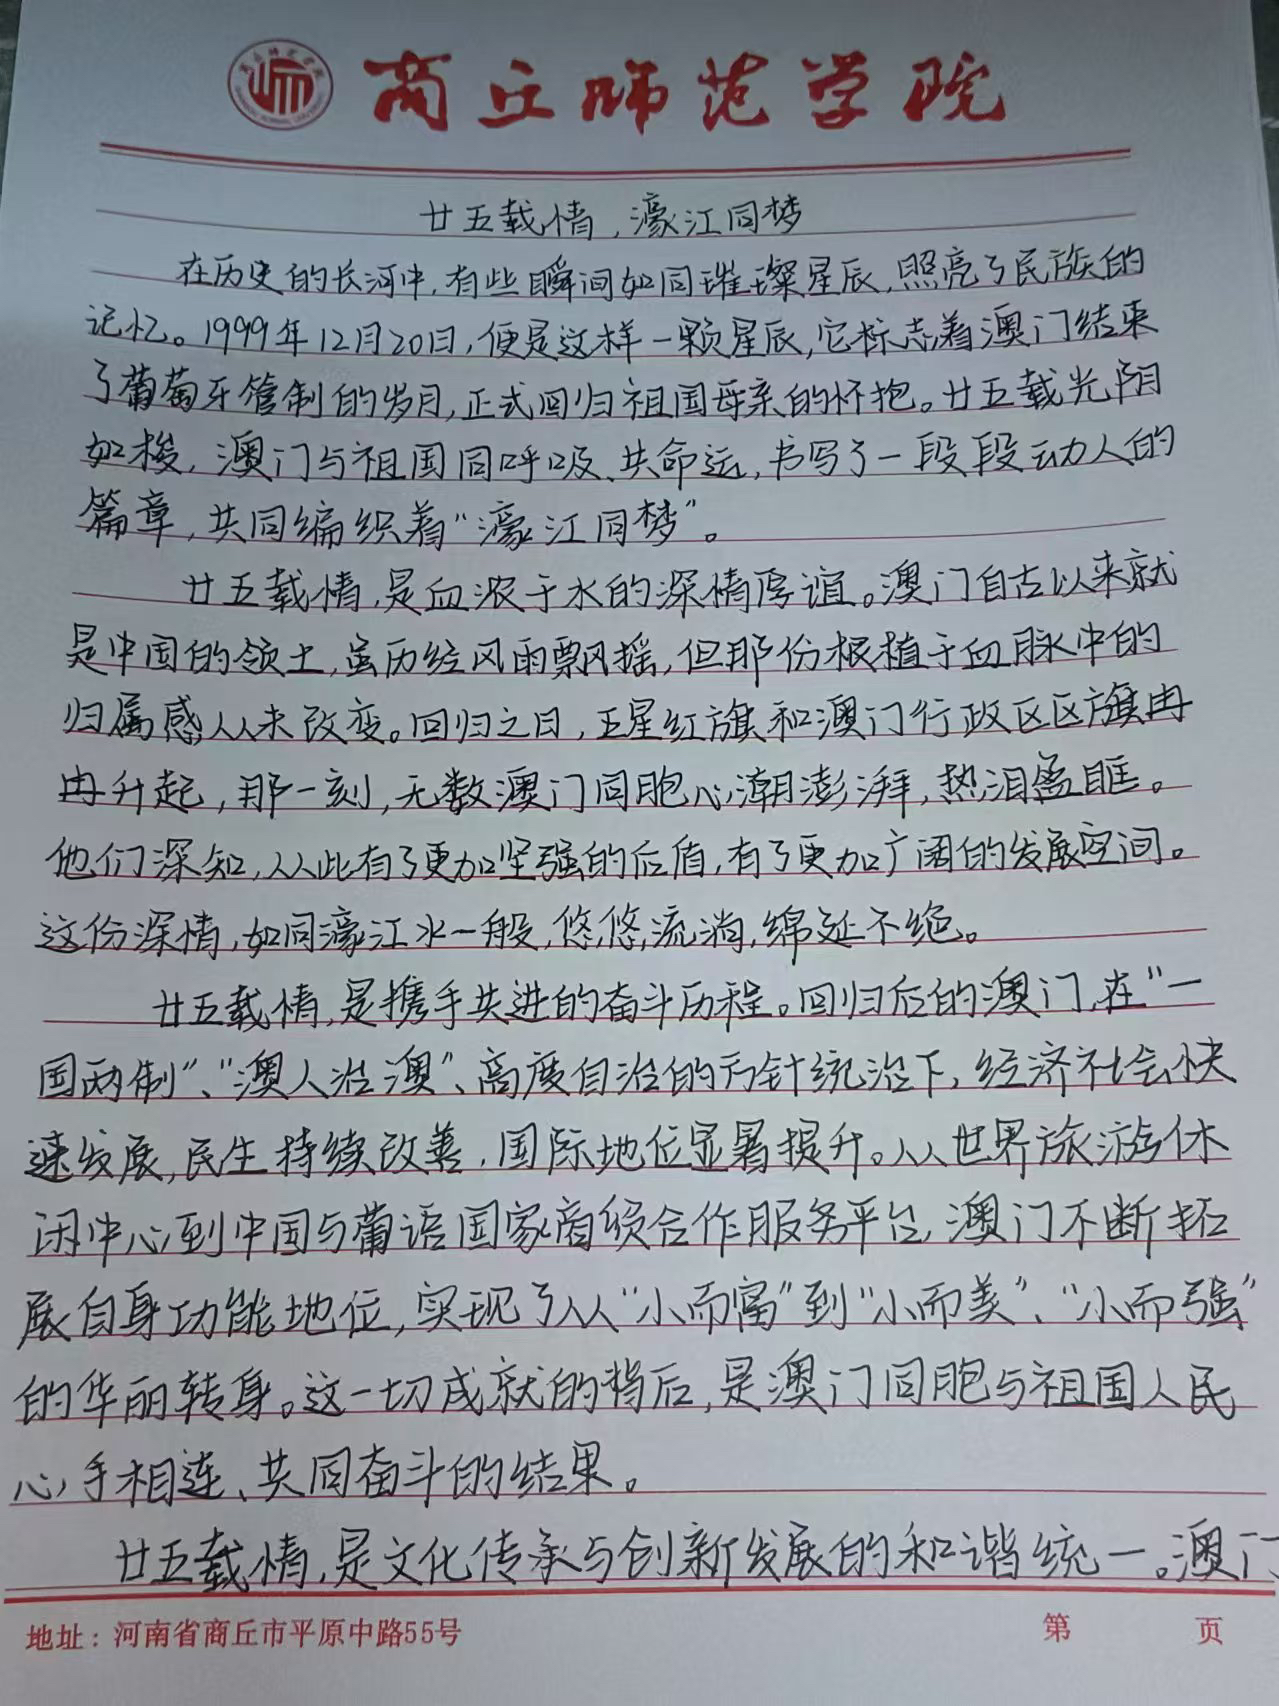 商丘师范学院
廿五载情,濠江同梦
在历史的长河中,有些瞬间如同璀璨星辰,照亮了民族的
记忆。1999年12月20日,便是这样一颗星辰,它标志着澳门结束
了葡萄牙管制的岁月,正式回归祖国母亲的怀抱。廿五载光阴
如梭,澳门与祖国同呼吸、共命运,书写了一段段动人的
篇章,共同编织着“濠江同梦”。
廿五载情,是血浓于水的深情厚谊。澳门自古以来就
是中国的领土,虽历经风雨飘摇,但那份根植于血脉中的
归属感从未改变。回归之日,五星红旗和澳门行政区区旗冉
冉升起,那一刻,无数澳门同胞心潮澎湃,热泪盈眶。
他们深知,从此有了更加坚强的后盾,有了更加广阔的发展空间。
这份深情,如同濠江水一般,悠悠流淌,绵延不绝。
廿五载情,是携手共进的奋斗历程。回归后的澳门,在“一
国两制”、“澳人治澳”、高度自治的方针统治下,经济社会快
速发展,民生持续改善,国际地位显著提升。从世界旅游休
闲中心到中国与葡语国家商贸合作服务平台,澳门不断拓
展自身功能地位,实现了从“小而富”到“小而美”、“小而强”
的华丽转身。这一切成就的背后,是澳门同胞与祖国人民
心手相连、共同奋斗的结果。
廿五载情,是文化传承与创新发展的和谐统一。澳门
地址:河南省商丘市平原中路55号 第 页